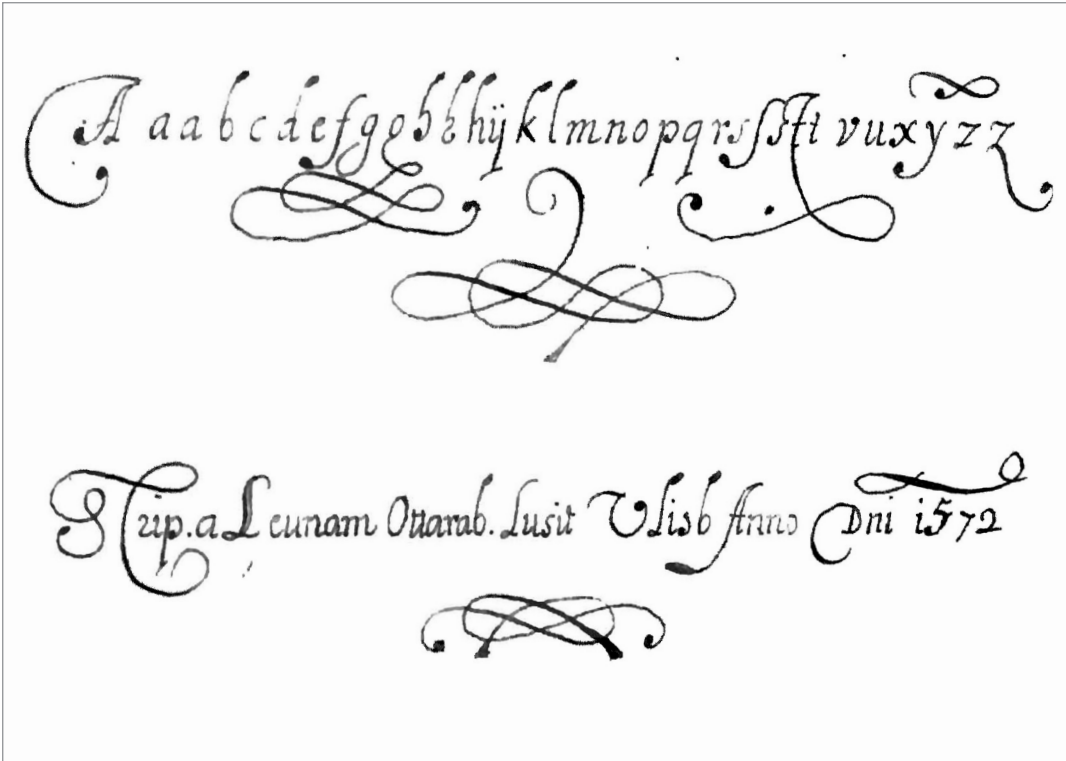 A a a b c d e f g g h h h ij k l m n o p q r s ſ s st t v u x y z z
Scrip. a Leunam Ottarab. Lusit Vlisb Anno Dni 1572